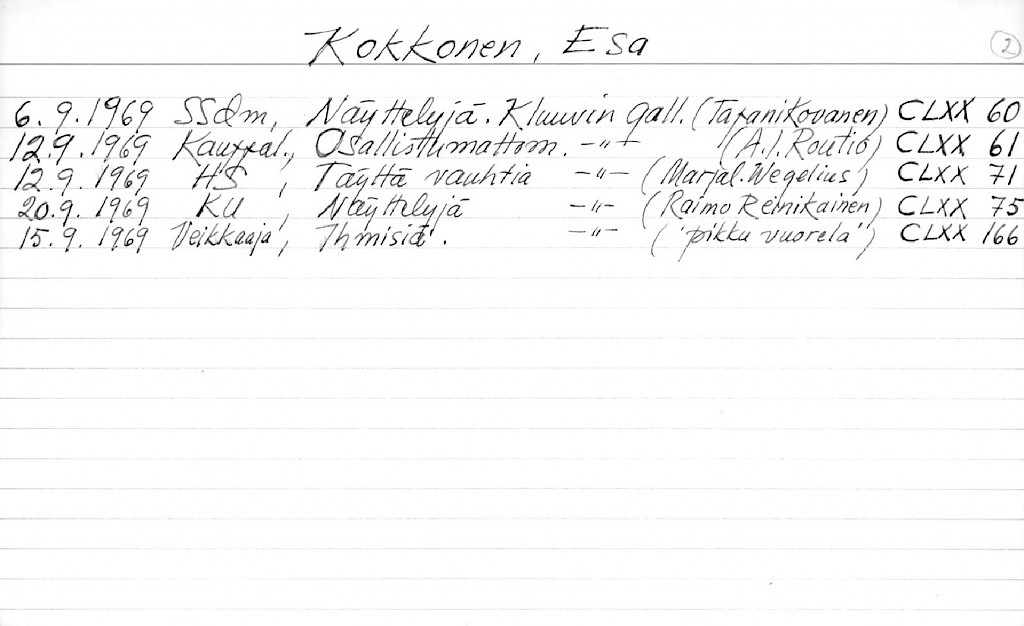 Kokkonen, Esa 2
6.9.1969 SSdm, Näyttelyjä. Kluuvin gall. (Tapani Kovanen) CLXX 60
12.9.1969 Kauppal., Osallistumattom. -"- (A.I. Routio) CLXX 61
12.9.1969 HS, Täyttä vauhtia -"- (Marja l. Wegelius) CLXX 71
20.9.1969 KU, Näyttelyjä -"- (Raimo Reinikainen) CLXX 75
15.9.1969 Veikkaaja, Ihmisiä. -"- ("pikku vuorela") CLXX 166